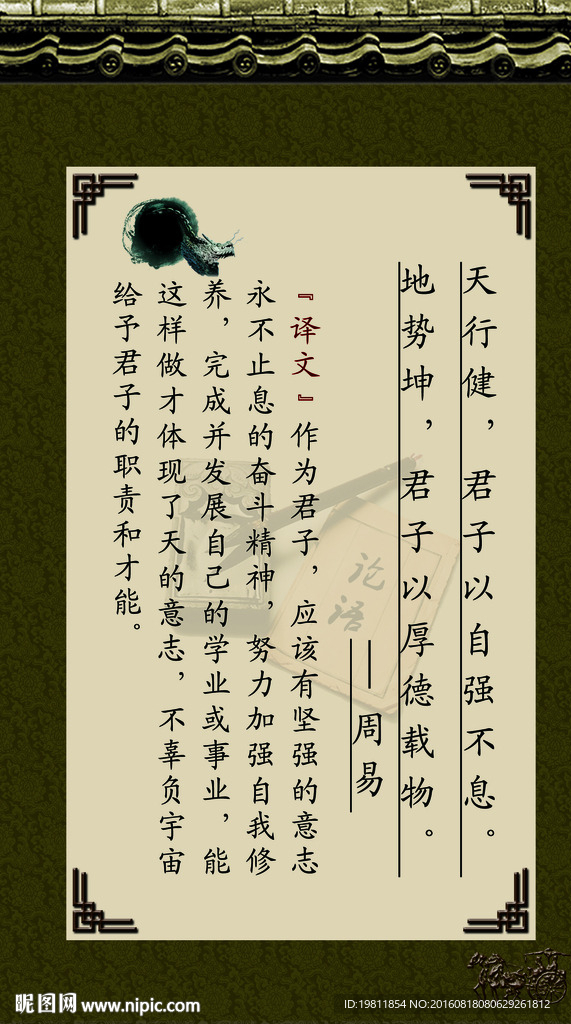 天行健，君子以自强不息。
地势坤，君子以厚德载物。
——周易
『译文』作为君子，应该有坚强的意志
永不止息的奋斗精神，努力加强自我修
养，完成并发展自己的学业或事业，能
这样做才体现了天的意志，不辜负宇宙
给予君子的职责和才能。
论语
昵图网 www.nipic.com
ID:19811854 NO:20160818080629261812